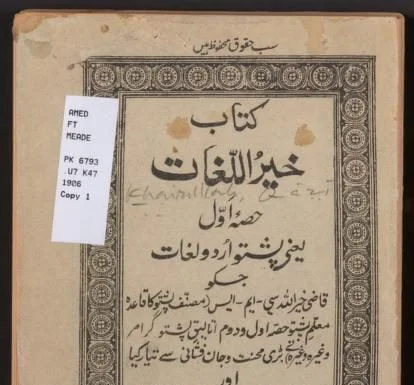 سب حقوق محفوظ ہیں
AMED
FT
MEADE
PK 6793
.U7 K47
1906
Copy 1
کتاب
خیر اللّغات
Khairullah,
حصۂ اوّل
یعنی پشتو اردو لغات
جسکو
قاضی خیر اللہ سی - ایم - ایس (مصنف پشتو کا قاعدہ
معلم پشتو حصہ اول و دوم اتالیق پشتو گرامر
وغیرہ وغیرہ) نے بڑی محنت و جان فشانی سے تیار کیا
اور